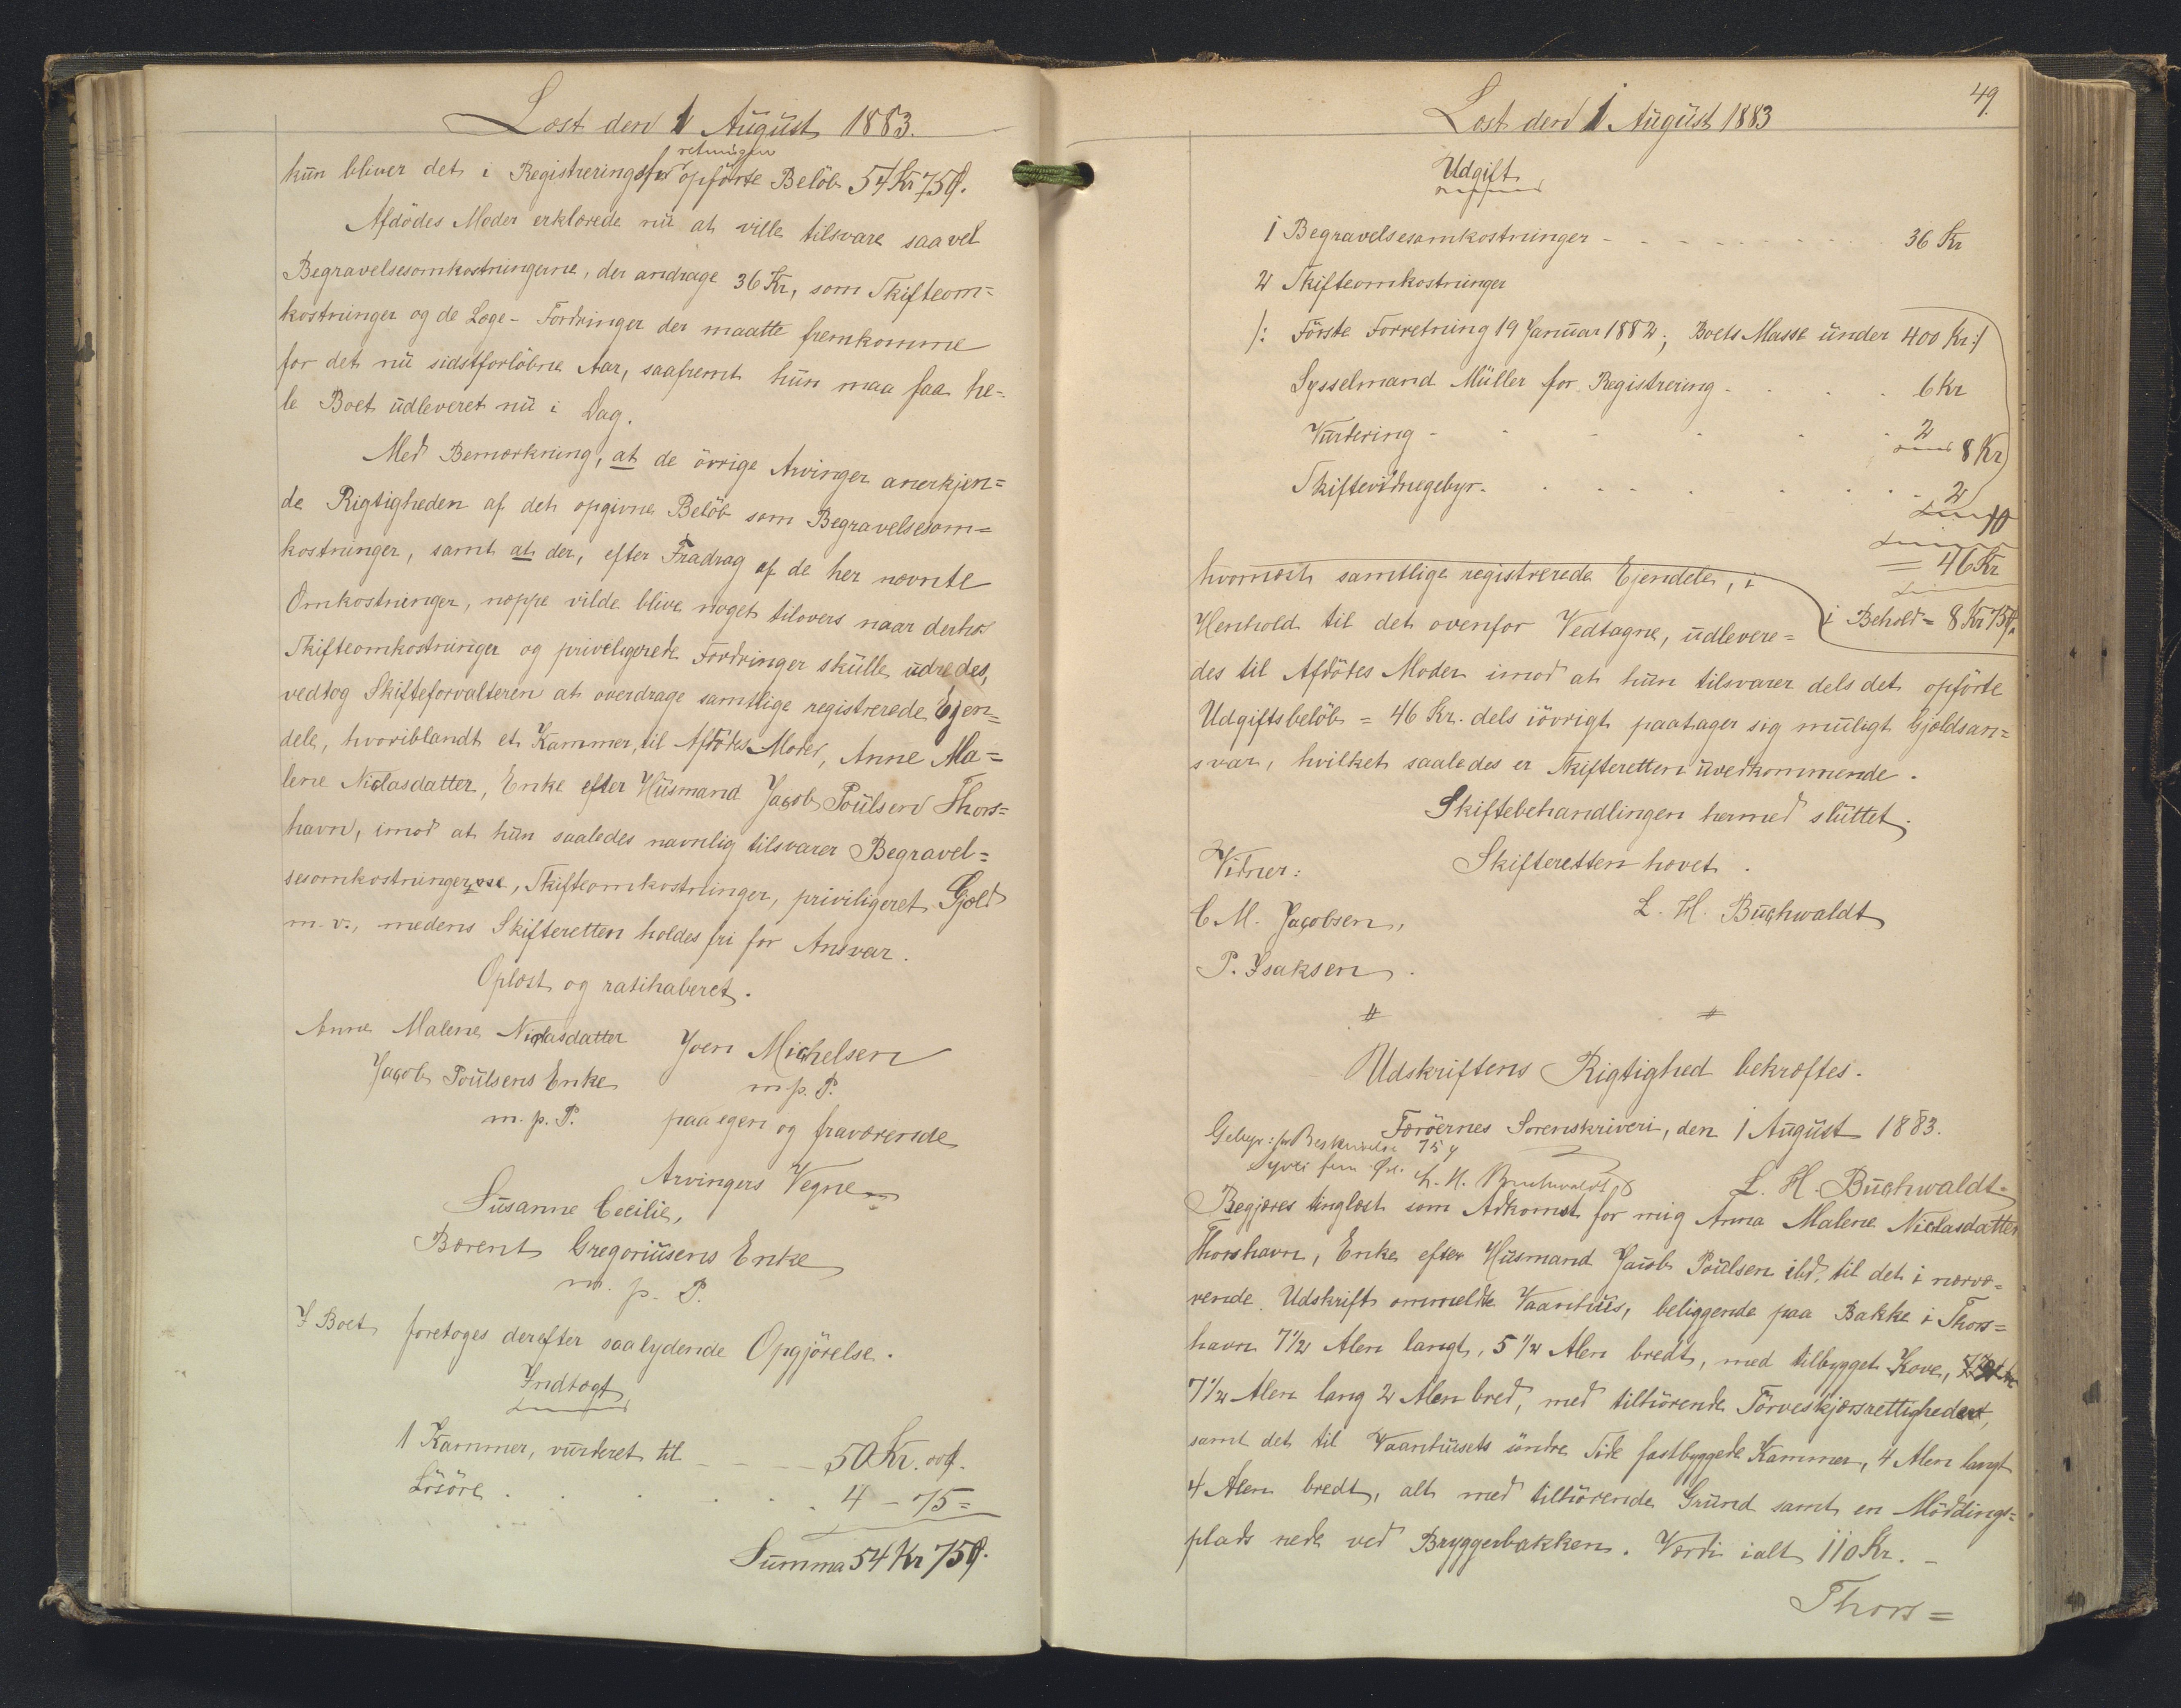 Læst den 1 August 1883.
kun bliver det i Registreringsforretningen opførte Beløb 54 Kr 75 Ø.
Afdödes Moder erklærede nu at ville tilsvare saavel
Begravelsesomkostningerne, der andrage 36 Kr, som Skifteom=
kostninger og de Læge- Fordringer der maatte fremkomme
for det nu sidstforløbne Aar, saafremt hun maa faa he=
le Boet udleveret nu i Dag.
Med Bemærkning, at de övrige Arvinger anerkjen=
de Rigtigheden af det opgivne Beløb som Begravelsesom=
kostninger, samt at der, efter Fradrag af de her nævnte
Omkostninger, næppe vilde blive noget tilovers naar derhos
Skifteomkostninger og priveligerede Fordringer skulle udredes,
vedtog Skifteforvalteren at overdrage samtlige registrerede Ejen=
dele, hvoriblandt et Kammer, til Afdödes Moder, Anne Ma=
lene Niclasdatter, Enke efter Husmand Jacob Poulsen Thors=
havn, imod at hun saaledes navnlig tilsvarer Begravel=
sesomkostningerne, Skifteomkostninger, priviligeret Gjæld
m. v., medens Skifteretten holdes fri for Ansvar.
Oplæst og ratihaberet.
Anne Malene Niclasdatter
Jacob Poulsens Enke
m. p. P.
Joen Michelsen
m. p. P.
paa egen og fraværende
Arvingers Vegne
Susanne Cecilie,
Bærent Gregoriusens Enke
m. p. P.
I Boet foretoges derefter saalydende Opgjörelse.
Indtægt
1 Kammer, vurderet til - - - 50 Kr. 00 Ø.
Lösöre . . . . . 4 - 75 =
Summa 54 Kr 75 Ø.
49.
Læst den 1 August 1883
Udgift
1 Begravelsesomkostninger - - - - - - 36 Kr
2 Skifteomkostninger
/: Förste Forretning 19 Januar 1882; Boets Masse under 400 Kr :/
Sysselmand Müller for Registrering - . . . 6 Kr
Vurdering - - - . . 2
8 Kr
Skiftevidnegebyr. . . . . . 2
10
= 46 Kr
i Behold = 8 Kr 75 Ø.
hvornæst samtlige registrerede Ejendele, i
Henhold til det ovenfor Vedtagne, udlevere=
des til Afdödes Moder imod at hun tilsvarer dels det opførte
Udgiftsbelöb = 46 Kr. dels iövrigt paatager sig muligt Gjældsan=
svar, hvilket saaledes er Skifteretten uvedkommende.
Skiftebehandlingen hermed sluttet.
Skifteretten hævet.
L. H. Buchwaldt
Vidner:
C M. Jacobsen,
P. Isaksen.
Udskriftens Rigtighed bekræftes.
Færöernes Sorenskriveri, den 1 August 1883.
L. H. Buchwaldt.
Gebyr: for Beskrivelse 75 Ø
Syvti fem Øre. L. H. Buchwaldt
Begjæres tinglæst som Adkomst for mig Anna Malene Niclasdatter
Thorshavn, Enke efter Husmand Jacob Poulsen ibd, til det i nærvæ=
rende Udskrift ommeldte Vaanhuus, beliggende paa Bakke i Thors=
havn 7 1/2 Alen langt, 5 1/2 Alen bredt, med tilbygget Kove,
7 1/2 Alen lang 2 Alen bred, med tilhörende Törveskjærsrettigheder,
samt det til Vaanhusets söndre Side fastbyggede Kammer, 4 Alen langt
4 Alen bredt, alt med tilhörende Grund samt en Möddings=
plads nede ved Bryggerbakken. Værdi ialt 110 Kr. -
Thors=